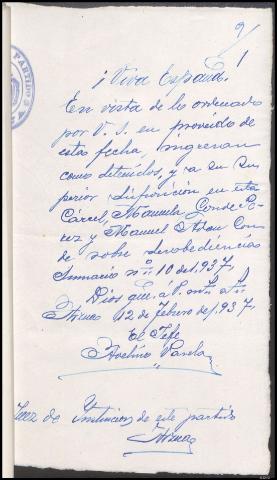 9/
1
¡Viva España!
En vista de lo ordenado
por V. S. en proveido de
estas fecha, ingresan
como detenidos, y a su su
perior disposición en esta
Cárcel, Manuela Conde Pe
rez y Manuel Adan Con
de sobre desobediencias
Sumario nº 10 de 1.937,
Dios gue. á V. S. m. añ.
12 de Febrero de 1.937.
El Jefe
Avelino Varela
Juez de Instruccion de este partido